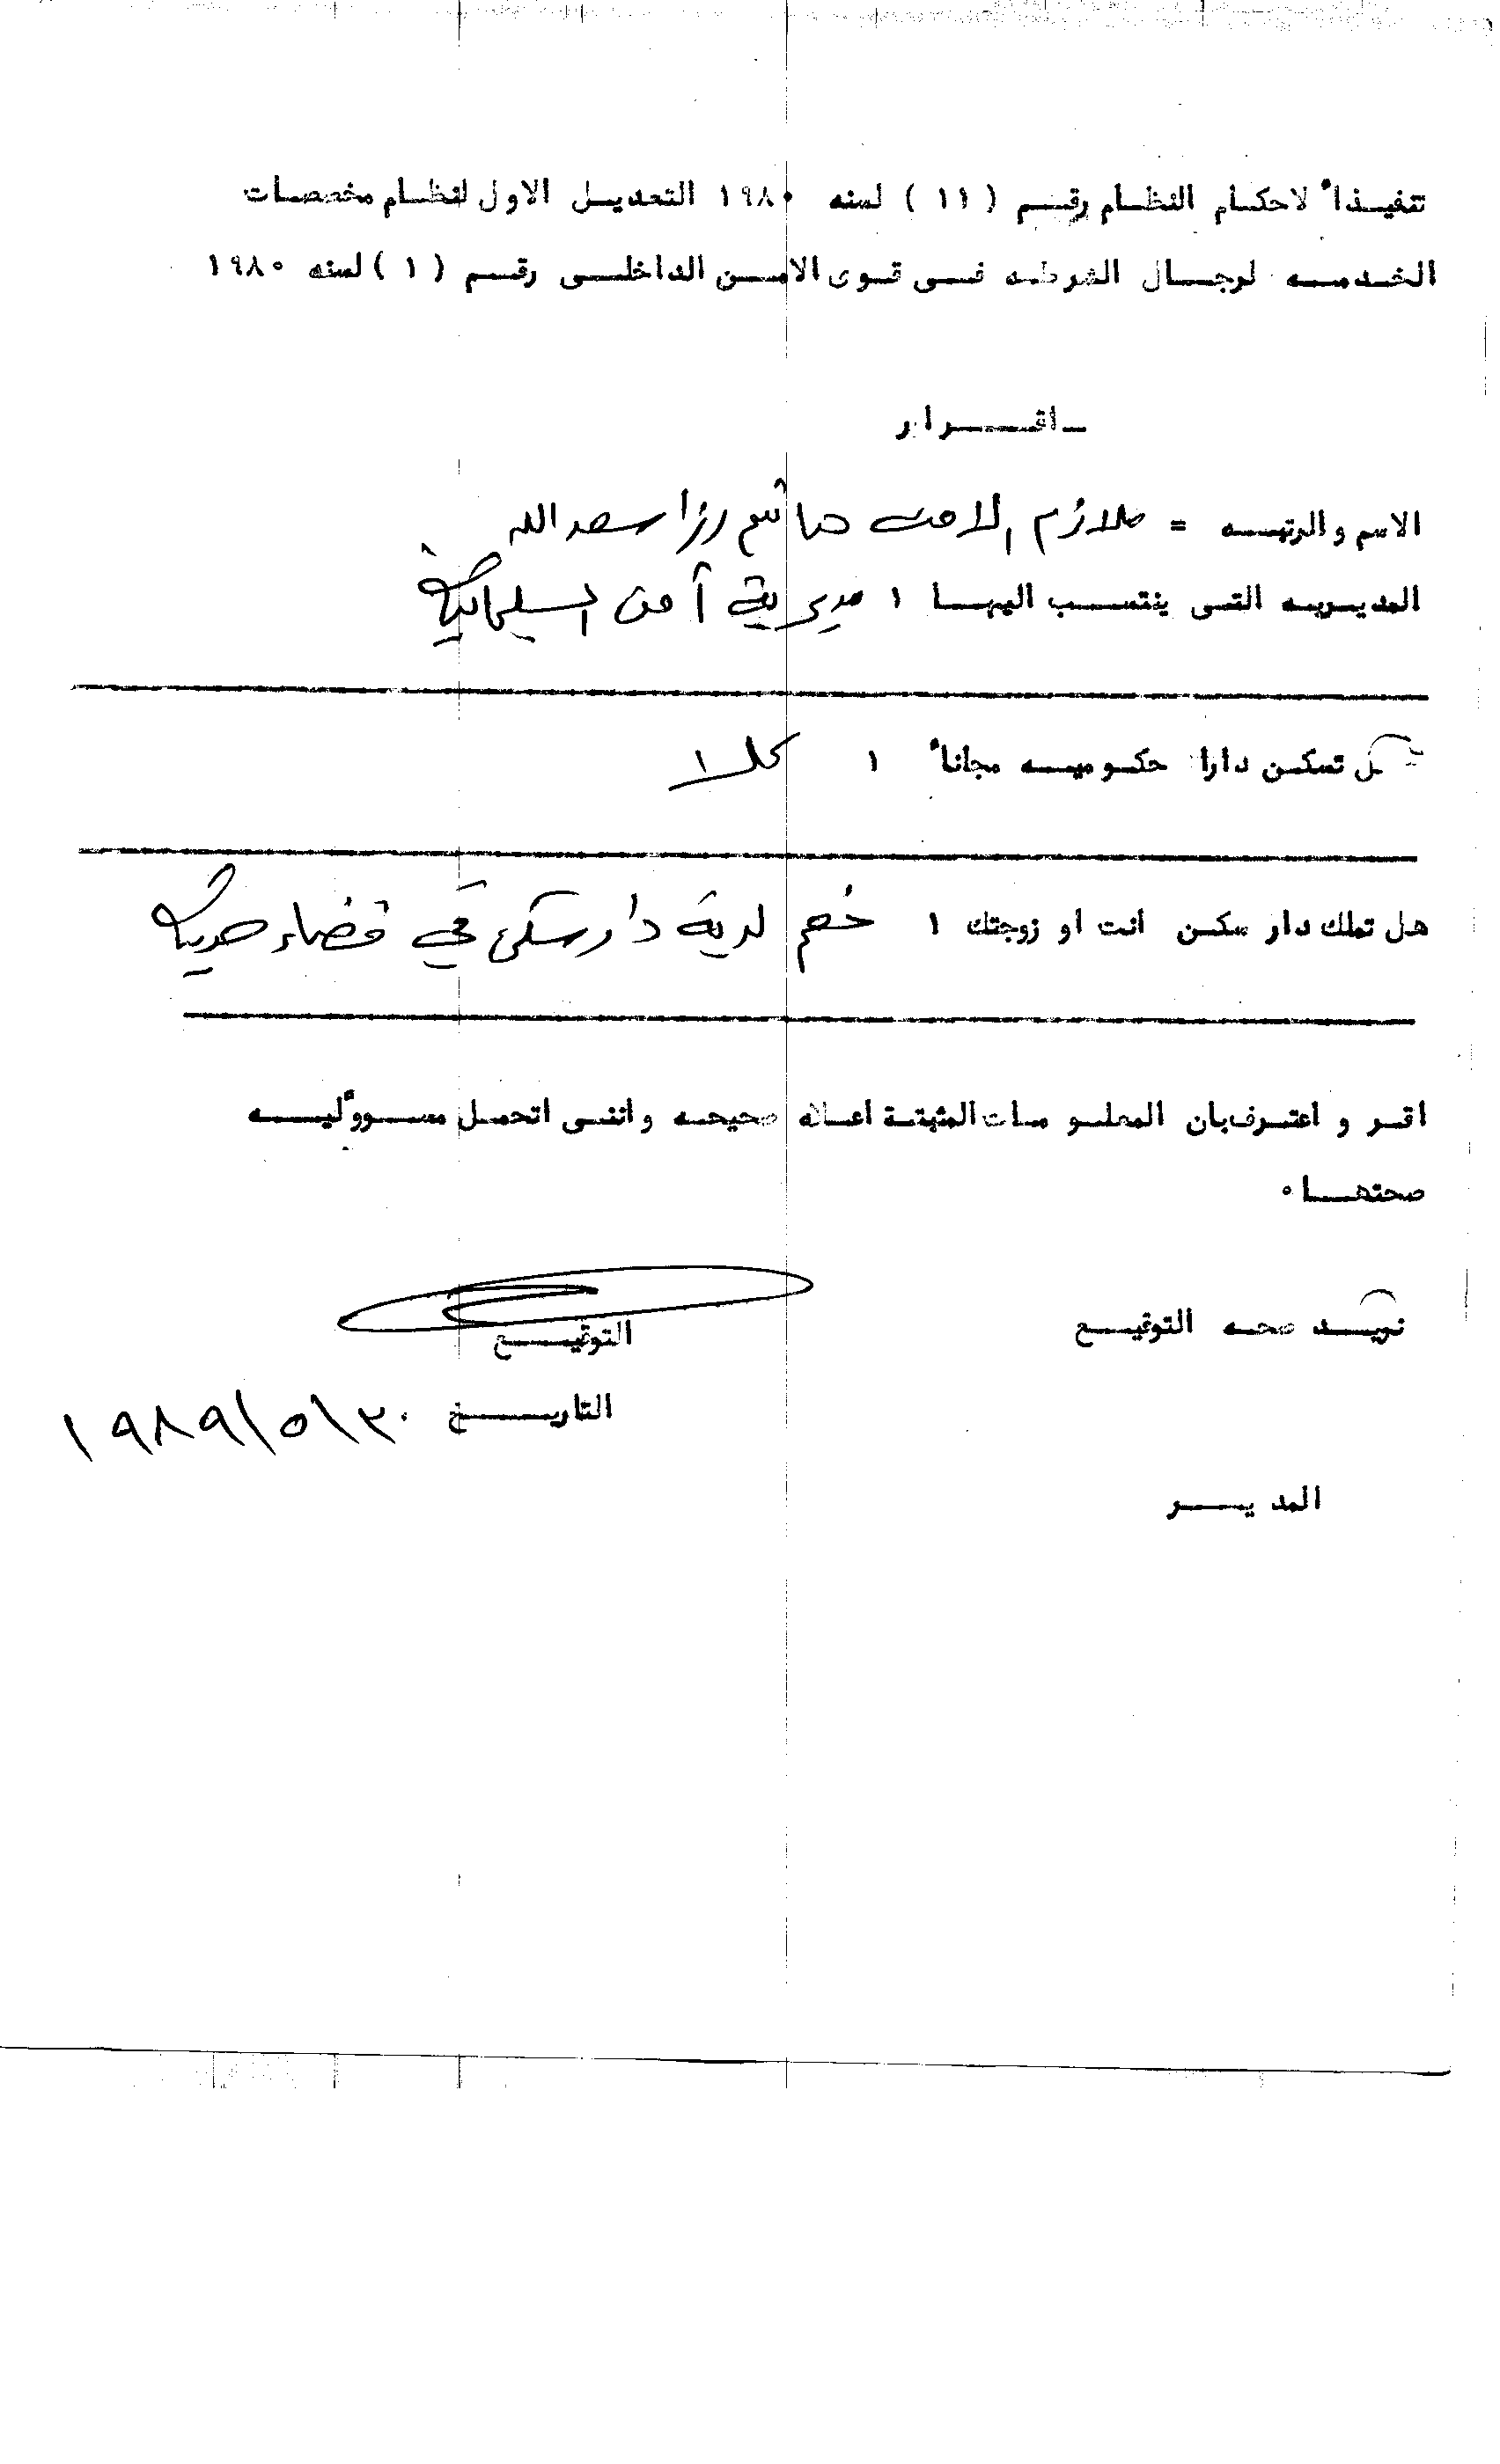 تنفيـذاً لاحكـام النظـام رقـم ( ١١ ) لسنه ١٩٨٠ التعديـل الاول لنظـام مخصصـات
الخـدمـه لرجـال الشرطـه فـى قـوى الامـن الداخلـى رقـم ( ١ ) لسنه ١٩٨٠
ـ اقـــرار
الاسم والرتبـه = ملازم الامن هاشم رزا سعد الله
المديـريـه التـى ينتسـب اليهـا : مديرية أمن السليمانية
هـل تسكـن دارا حكـوميـه مجاناً : كلا
هـل تملك دار سكـن انت او زوجتك : نعم لدية دار سكن في قضاء
اقـر و اعتـرف بان المعلـومـات المثبتـة اعـلاه صحيحـه واننـى اتحمـل مسـووًليـه
صحتهـا ٠
نويـد صحـه التوقيـع
التوقيـع
التاريـخ ٣٠/٥/١٩٨٩
المديـــر